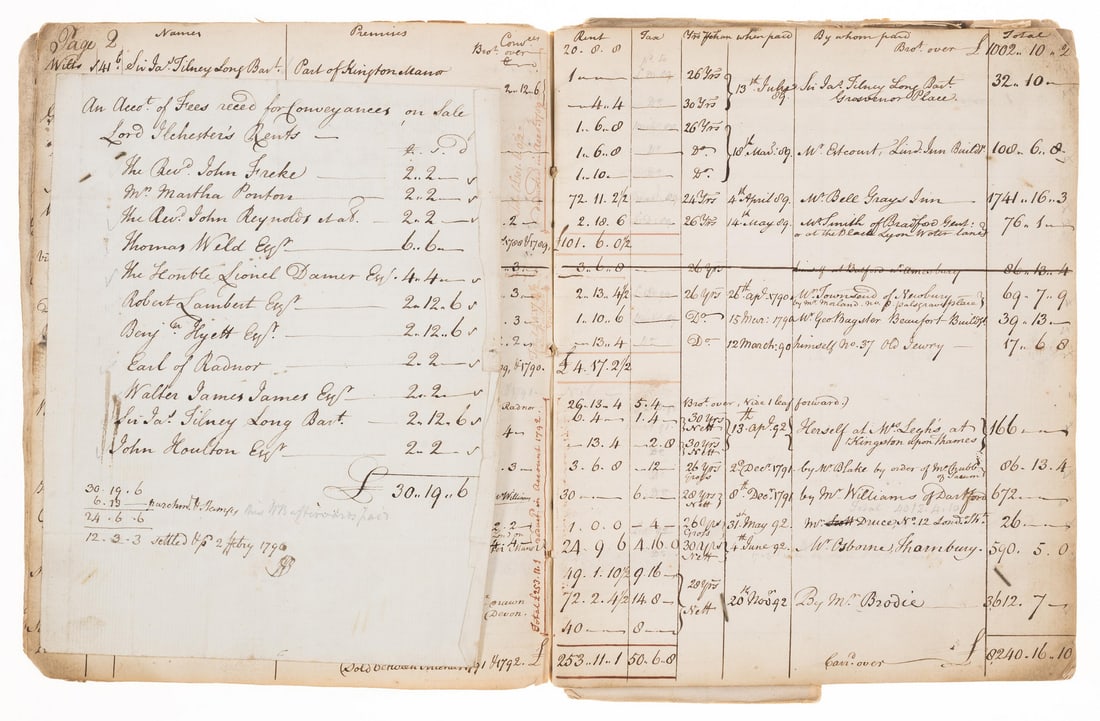 Page 2 Names Premises
Wilts S41 6 Sir Jas. Tilney Long Bart. Part of Kington Manor
Conv.ces over
Bro.t
2..12..6
An Acco.t of Fees reced for Conveyances on Sale
Lord Ilchester's Rents
£. s. d
The Rev.d John Freke 2..2..— s
Mrs Martha Ponton 2..2..— s
The Rev.d John Reynolds 2..2..— s
Thomas Weld Esq.r 6..6..—
The Honble Lionel Damer Esq.r 4..4..— s
Robert Lambert Esq.r 2..12..6 s
Benj.n Hyett Esq.r 2..12..6
Earl of Radnor 2..2..— s
Walter James James Esq.r 2..2..— s
Sir Jas. Tilney Long Bart. 2..12..6 s
John Houlton Esq.r 2..2..— s
£ 30..19..6
30..19..6
6..13..— parchm.t & stamps
24..6..6
12..3..3 settled 2 Febry 1790
..2..—
1788 & 1789
..3..—
..3..—
..3..—
..2..—
& 1790.
Radnor
4..—
..3..—
William
..2..2
Drawn
Devon.
Total £253.11.1 bro.t in Account 1792.
Sold between 1791 & 1792. £
Rent Tax Yrs Purchase when paid By whom paid Total
20..8..8 Bro.t over £ 1002..10..2
1..—..— 26 Yrs 13th July 89. Sir Jas. Tilney Long Bart. 32..10..—
—..4..4 30 Yrs Grosvenor Place
1..6..8 26 Yrs
1..6..8 Do 18th Mar: 89. Mr Estcourt, Linc.n Inn Build.gs 108..6..8
1..10..— Do
72..11..2½ 24 Yrs 4th April 89. Mr Bell Grays Inn 1741..16..3
2..18..6 26 Yrs 14th May 89. Mr Smith of Bradford Gent: 76..1..—
or at the Black Lyon Water lane
£101..6..0½
3..6..8 26 Yrs himself at Amesbury 86..13..4
2..13..4½ 26 Yrs 26th Ap.l 1790 Mr Townsend of Newbury 69..7..9
by Mr Morland No. Palsgrave place
1..10..6 Do 15 Mar: 1790 Mr Geo Bagster Beaufort Build.gs 39..13..—
—..13..4 Do 12 March: 90 himself No. 37 Old Jewry 17..6..8
£4..17..2½
26..13..4 5..4..— Bro.t over, Vide 1 leaf forward.
6..4..— 1..4..— 30 Yrs Nett 13th Ap.l 92 Herself at Mrs Legh's, at 166..—..—
—..13..4 —..2..8 30 Yrs Nett Kingston upon Thames
3..6..8 —..12..— 26 Yrs Gross 29 Dec.r 1791 by Mr Blake by order of Mr Chubb 86..13..4
30..—..— 6..—..— 28 Yrs Nett 8th Dec.r 1791 by Mr Williams of Dartford 672..—..—
1..0..0 —..4..— 26 Yrs Gross 31st May 92 Mr Druce, No. 12 Lond. 26..—..—
24..9..6 4..16..0 30 Yrs Nett 4th June 92. Mr Osborne, Thornbury. 590..5..0
49..1..10½ 9..16..— 28 Yrs
72..2..4½ 14..8..— Nett 20th Nov.r 92 By Mr Brodie 3612..7..—
40..—..— 8..—..—
253..11..1 50..6..8 Carr.d over £ 8240..16..10